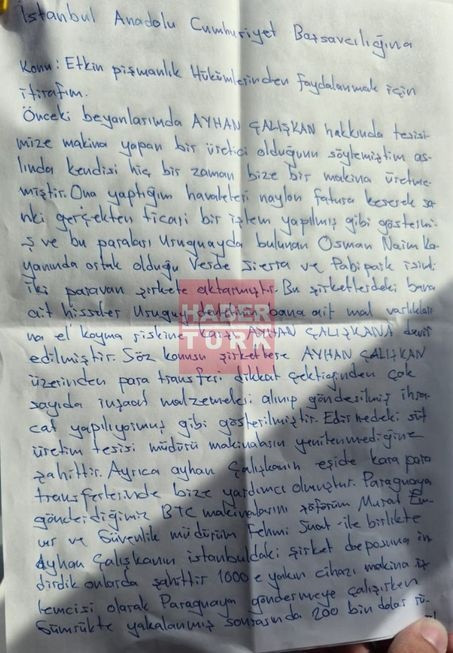 İstanbul Anadolu Cumhuriyet Başsavcılığına
Konu: Etkin pişmanlık Hükümlerinden faydalanmak için
itirafım.
Önceki beyanlarımda AYHAN ÇALIŞKAN hakkında tesisi-
mize makina yapan bir üretici olduğunu söylemiştim as-
lında kendisi hiç bir zaman bize bir makina üretme-
miştir. Ona yaptığım havaleleri naylon fatura keserek san
ki gerçekten ticari bir işlem yapılmış gibi göstermi-
ş ve bu paraları Uruguayda bulunan Osman Naim Ka
yanında ortak olduğu Verde Sierra ve isimli
iki paravan şirkete aktarmıştır. Bu şirketlerdeki bana
ait hisseler Uruguay bana ait mal varlıkları
na el koyma riskine karşı AYHAN ÇALIŞKANA devir
edilmiştir. Söz konusu şirketlere AYHAN ÇALIŞKAN
üzerinden para transferi dikkat çektiğinden çok
sayıda inşaat malzemeleri alınıp gönderilmiş ihra-
cat yapılıyormuş gibi gösterilmiştir. Edirnedeki süt
üretim tesisi müdürü makinaların yenilenmediğine
şahittir. Ayrıca ayhan Çalışkanın eşide kara para
transferlerinde bize yardımcı olmuştur. Paraguaya
gönderdiğimiz BTC makinalarını şoförüm Murat
ve Güvenlik müdürüm Fehmi Suat ile birlikte
Ayhan Çalışkanın istanbuldaki şirket deposuna in
dirdik onlarda şahittir 1000 e yakın cihazı makina
temcisi olarak Paraguaya göndermeye çalışırken
Gümrükte yakalanmış sonrasında 200 bin dolar rü